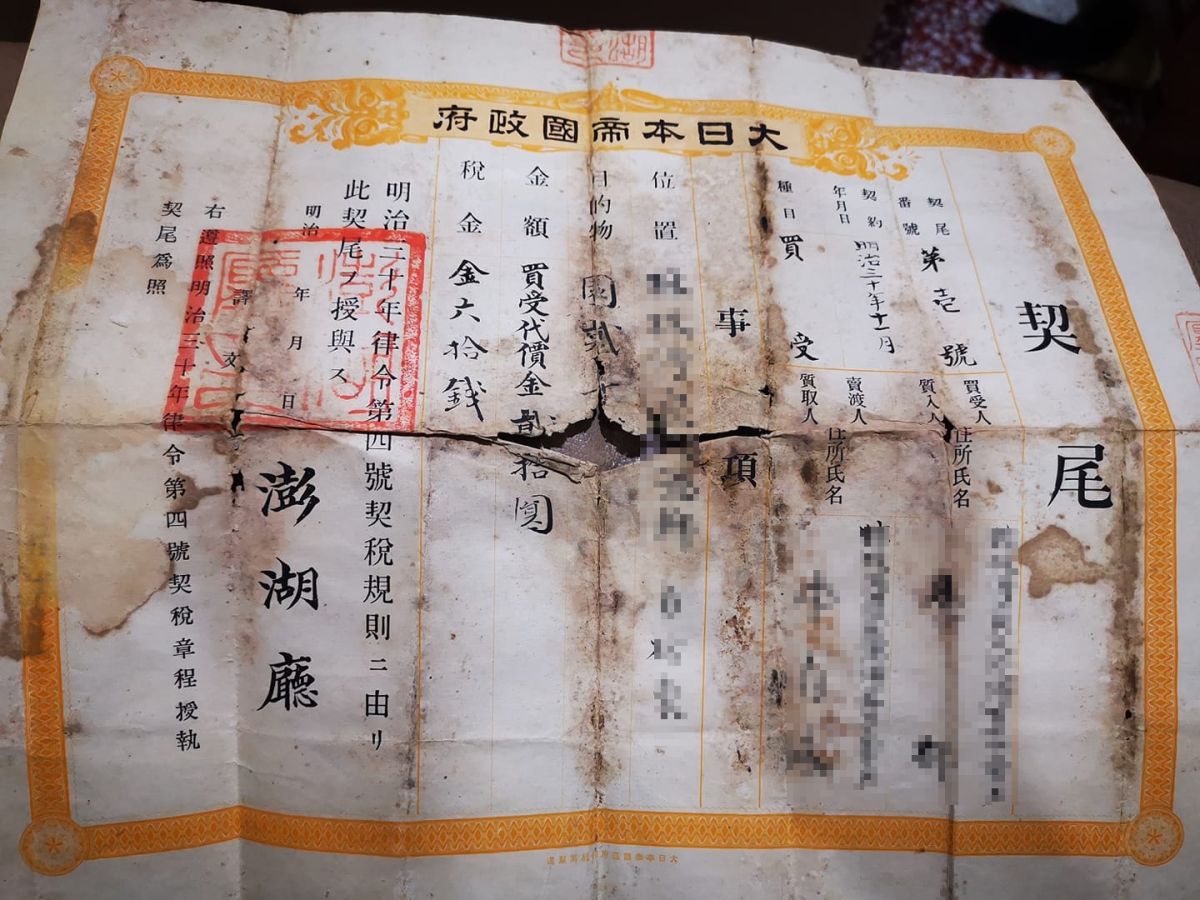 大日本帝國政府
契尾
契尾番號
第壱號
買受人
質入人
住所氏名
契約年月日
明治三十年十一月
賣渡人
質取人
住所氏名
種目 買受
事項
位置
目的物 園貳
金額 買受代價金貳拾圓
稅金 金六拾錢
明治三十年律令第四號契稅規則ニ由リ
此契尾ヲ授與ス
明治 年 月 日
澎湖廳
譯文
右遵照明治三十年律令第四號契稅章程授執
契尾爲照